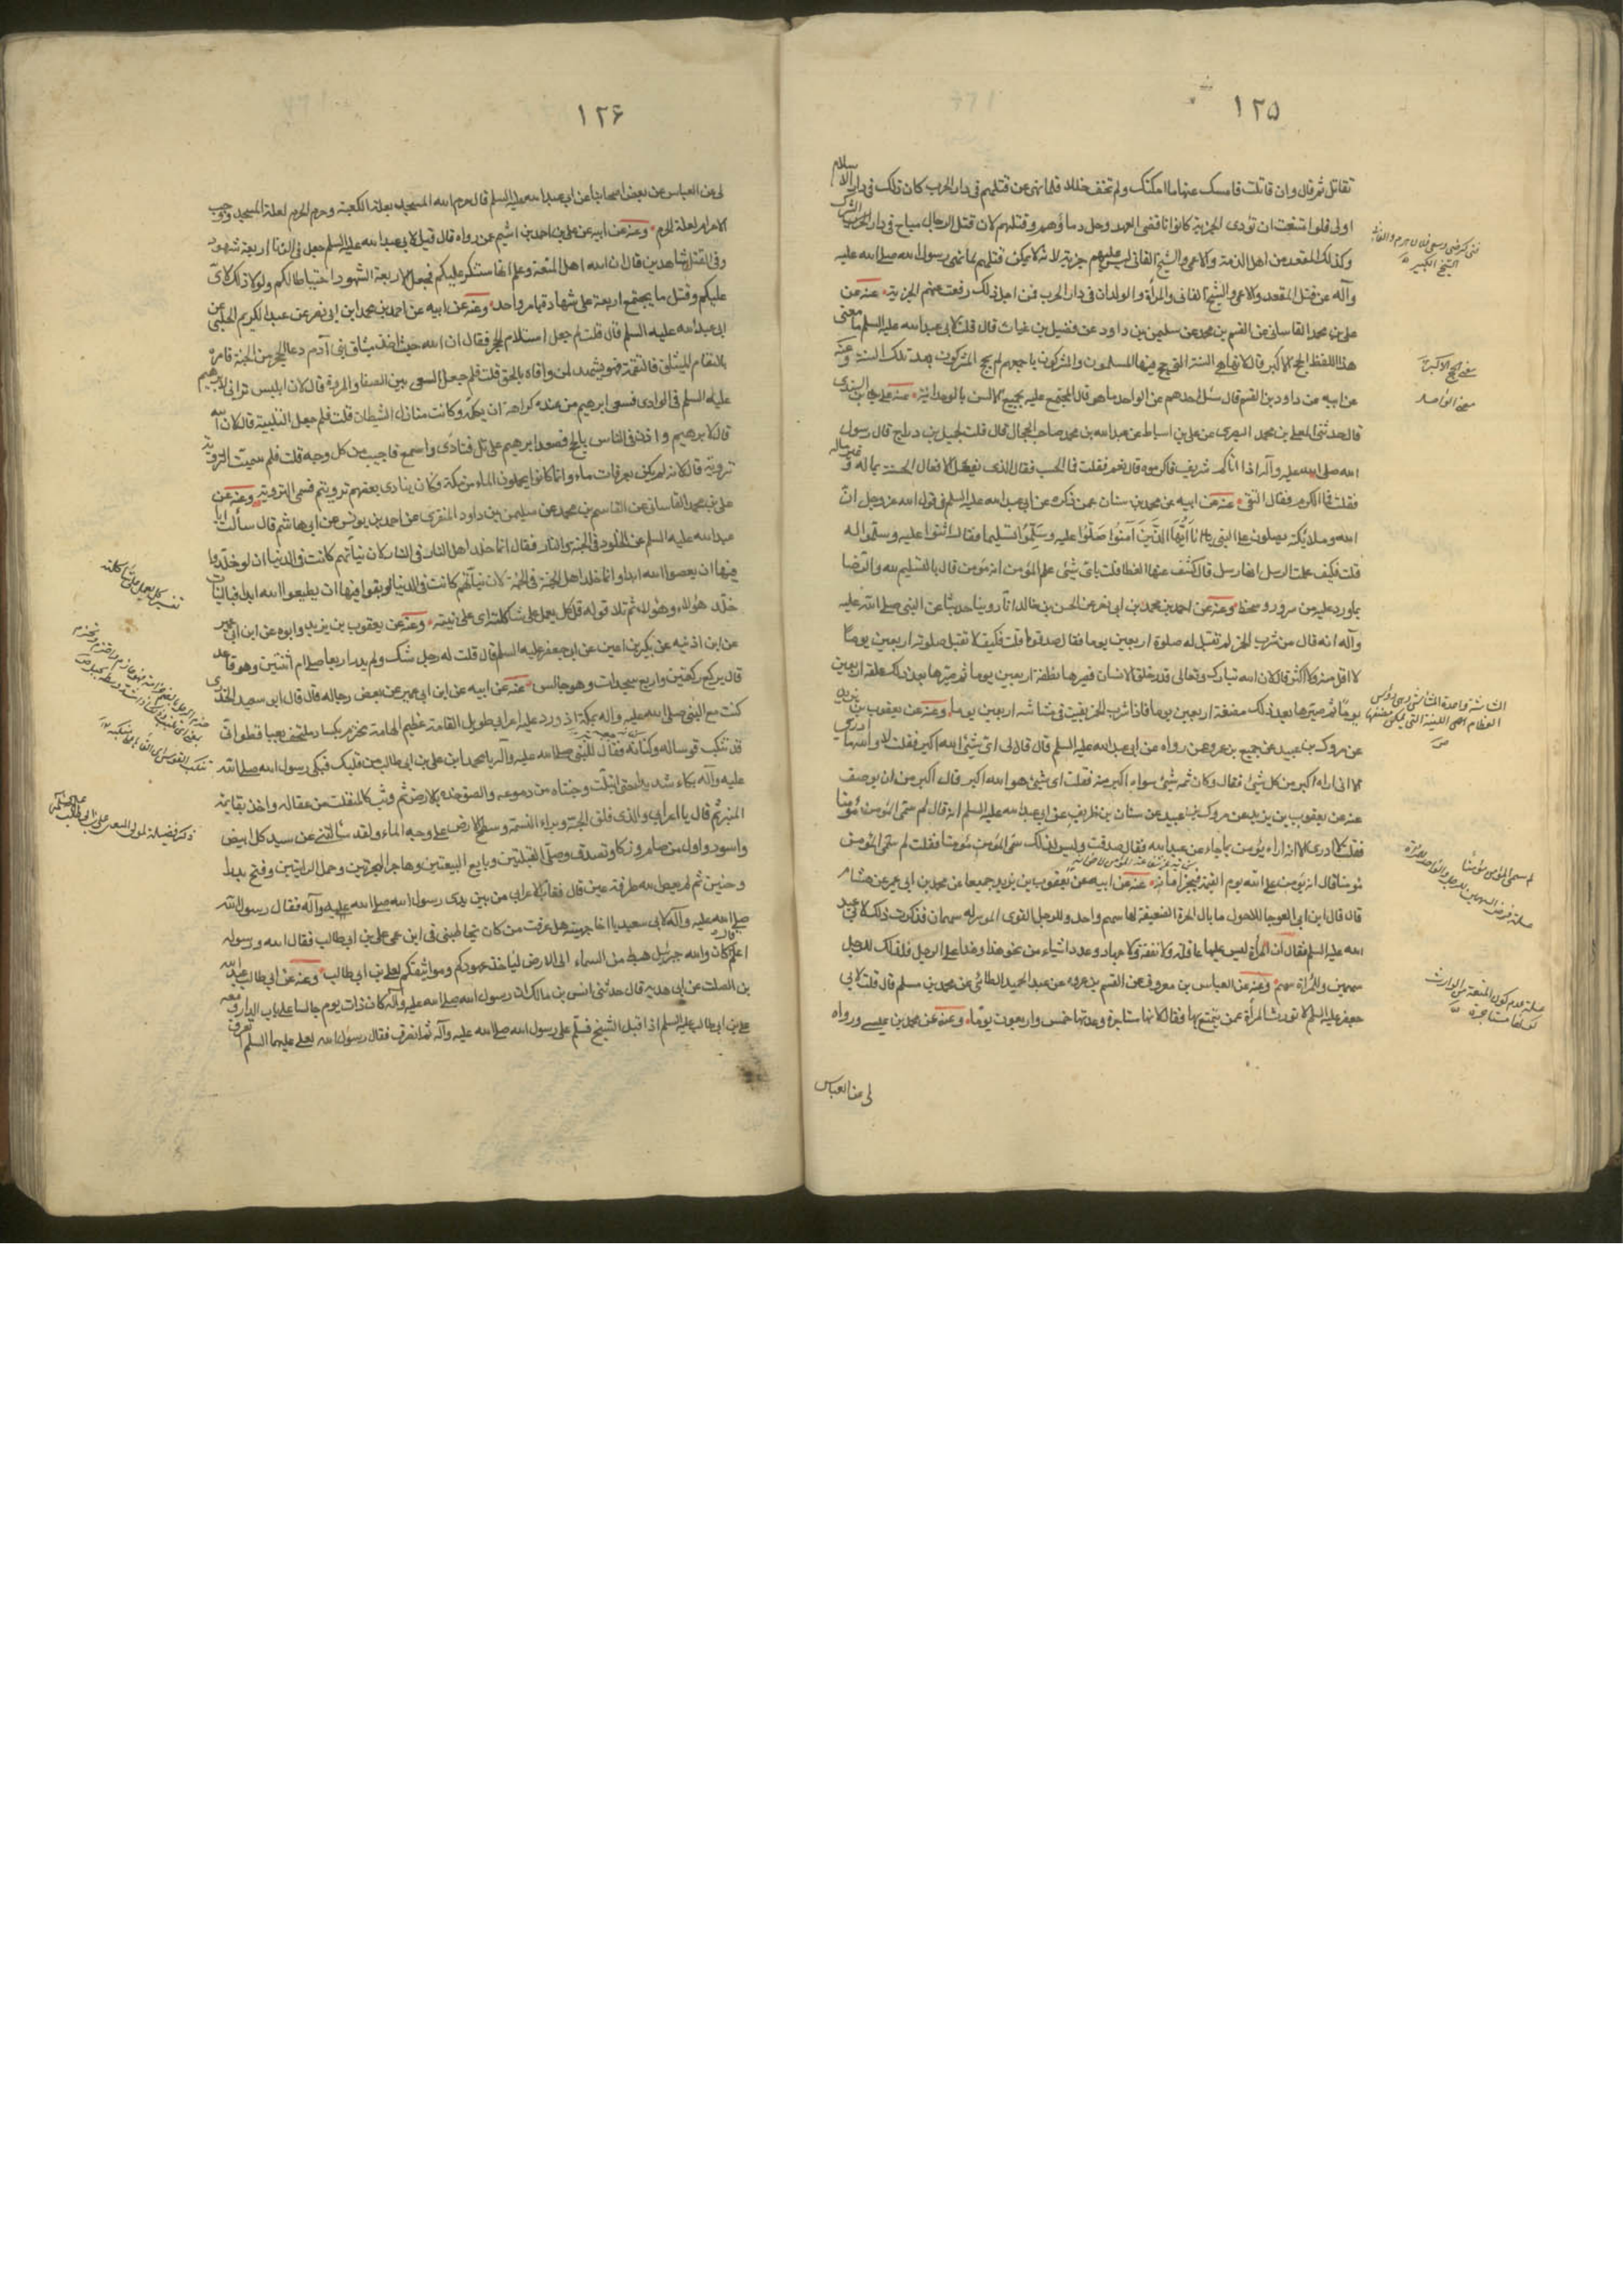 ١٢٥
تقاتل ثم قال وان قاتلت فامسك عنها ما امكنك ولم تخف خللا فلما نهى عن قتلهم فى دار الحرب كان ذلك فى دار الاسلام
اولى فلو امتنعت ان تؤدى الجزية كانوا ناقضى العهد وحل دماؤهم وقتلهم لان قتل الرجال مباح فى دار الشرك
وكذلك المقعد من اهل الذمة والاعمى والشيخ الفانى ليس عليهم جزية لانه لا يمكن قتلهم لما نهى رسول الله صلى الله عليه
وآله عن قتل المقعد والاعمى والشيخ الفانى والمرأة والولدان فى دار الحرب فمن اجل ذلك رفعت عنهم الجزية عنه عن
على بن محمد القاسانى عن القسم بن محمد عن سليمن بن داود عن فضيل بن غياث قال قلت لابى عبد الله عليه السلم ما معنى
هذا اللفظ الحج الاكبر قال لانها هى السنة التى حج فيها المسلمون والمشركون باجمعهم لم يحج المشركون بعد تلك السنة وعنه
عن ابيه عن داود بن القسم قال سئل احدهم عن الواحد ما هو قال المجتمع عليه بجميع الالسن بالوحدانية عنه على بن السندى
قال حدثنى المعلى بن محمد البصرى عن على بن اسباط عن عبد الله بن محمد صاحب الحجال قال قلت لجميل بن دراج قال رسول
الله صلى الله عليه وآله اذا اتاكم شريف فاكرموه قال نعم فقلت فما الحسب فقال الذى يفعل الافعال الحسنة بماله وغير ماله
فقلت فما الكرم فقال التقى عنه عن ابيه عن محمد بن سنان عمن ذكره عن ابى عبد الله عليه السلم فى قول الله عز وجل ان
الله وملائكته يصلون على النبى يا ايها الذين آمنوا صلوا عليه وسلموا تسليما فقال اثنوا عليه وسلموا له
قلت فكيف علمت الرسل انها رسل قال كشف عنها الغطا قلت باى شىء علم المؤمن انه مؤمن قال بالتسليم لله والرضا
بما ورد عليه من سرور وسخط وعنه عن احمد بن محمد بن ابى نصر عن الحسن بن خالد انا روينا حديثا عن النبى صلى الله عليه
وآله انه قال من شرب الخمر لم تقبل له صلوة اربعين يوما فقال صدقوا قلت فكيف لا تقبل صلوته اربعين يوما
لا اقل من ذلك ولا اكثر قال لان الله تبارك وتعالى قدر خلق الانسان فصيرها نطفة اربعين يوما ثم صيرها بعد ذلك علقة اربعين
يوما ثم صيرها بعد ذلك مضغة اربعين يوما فاذا شرب الخمر بقيت فى مشاشه اربعين يوما وعنه عن يعقوب بن يزيد
عن مروك بن عبيد عن جميع بن عمرو عمن رواه عن ابى عبد الله عليه السلم قال قال لى اى شىء الله اكبر فقلت لا والله ما ادرى
الا انى اراه اكبر من كل شىء فقال وكان ثم شىء سواه اكبر منه فقلت اى شىء هو الله اكبر قال اكبر من ان يوصف
عنه عن يعقوب بن يزيد عن مروك بن عبيد عن سنان بن ظريف عن ابى عبد الله عليه السلم انه قال لم سمى المؤمن مؤمنا
فقلت لا ادرى الا انه اراه يؤمن بما جاء من عند الله فقال صدقت وليس لذلك سمى المؤمن مؤمنا فقلت لم سمى المؤمن
مؤمنا قال انه يؤمن على الله يوم القيمة فيجيز امانه عنه عن ابيه عن يعقوب بن يزيد جميعا عن محمد بن ابى عمير عن هشام
قال قال ابن ابى العوجا للاحول ما بال المرأة الضعيفة لها سهم واحد وللرجل القوى الموسر له سهمان فذكرت ذلك لابى عبد
الله عليه السلم فقال ان المرأة ليس عليها عاقلة ولا نفقة ولا جهاد وعدد اشياء من نحو هذا وهذا على الرجل فلذلك للرجل
سهمين وللمرأة سهم وعنه عن العباس بن معروف عن القسم بن عروه عن عبد الحميد الطائى عن محمد بن مسلم قال قلت لابى
جعفر عليه السلم لا تورث المرأة عمن يتمتع بها فقال لانها مستاجرة وعدتها خمس واربعون يوما وعنه عن محمد بن عيسى ورواه
معنى الحج الاكبر
معنى الواحد
لم سمى المؤمن مؤمنا
علة عدم كون المتعة من الوارث لكونها مستاجرة
لى عن العباس
١٢۶
لى عن العباس عن بعض اصحابنا عن ابى عبد الله عليه السلم قال حرم الله المسجد لعلة الكعبة وحرم الحرم لعلة المسجد ووجب
الاحرام لعلة الحرم وعنه عن ابيه عن على بن احمد بن اشيم عمن رواه قال قيل لابى عبد الله عليه السلم جعل فى الزنا اربعة شهود
وفى القتل شاهدين قال ان الله احل المتعة وعلم انها ستنكر عليكم فجعل الاربعة الشهود احتياطا لكم ولولا ذلك لاتى
عليكم وقتل ما يجتمع اربعة على شهادة بامر واحد وعنه عن ابيه عن احمد بن محمد ابن ابى نصر عن عبد الكريم الحلبى عن
ابى عبد الله عليه السلم قال قلت لم جعل استلام الحجر فقال ان الله حيث اخذ ميثاق بنى آدم دعا الحجر من الجنة فامره
بالتقام الميثاق فالتقمه فهو يشهد لمن وافاه بالحق قلت فلم جعل السعى بين الصفا والمروة قال لان ابليس تراءى لابرهيم
عليه السلم فى الوادى فسعى ابرهيم من عنده كراهة ان يكلمه وكانت منازل الشيطان قلت فلم جعل التلبية قال لان الله
قال لابرهيم واذن فى الناس بالحج فصعد ابرهيم على تل فنادى واسمع فاجيب من كل وجه قلت فلم سميت التروية
تروية قال لانه لم يكن بعرفات ماء وانما كانوا يحملون الماء من مكة وكان ينادى بعضهم ترويتم فسمى التروية وعنه عن
على بن محمد القاسانى عن القاسم بن محمد عن سليمن بن داود المنقرى عن احمد بن يونس عن ابى هاشم قال سألت ابا
عبد الله عليه السلم عن الخلود فى الجنة والنار فقال انما خلد اهل النار فى النار لان نياتهم كانت فى الدنيا ان لو خلدوا
فيها ان يعصوا الله ابدا وانما خلد اهل الجنة فى الجنة لان نياتهم كانت فى الدنيا لو بقوا فيها ان يطيعوا الله ابدا فبالنيات
خلد هؤلاء وهؤلاء ثم تلا قوله قل كل يعمل على شاكلته اى على نيته وعنه عن يعقوب بن يزيد وابوه عن ابن ابى عمير
عن ابن اذينه عن بكير بن اعين عن ابى جعفر عليه السلم قال قلت له رجل شك ولم يدر اربعا صلى ام اثنتين وهو قاعد
قال يركع ركعتين واربع سجدات وهو جالس عنه عن ابيه عن ابن ابى عمير عن بعض رجاله قال قال ابى سعيد الخدرى
كنت مع النبى صلى الله عليه وآله بمكة اذ ورد عليه اعرابى طويل القامة عظيم الهامة محتزم بكساء وملتحف بعبا قطوانى
قد تنكب قوسا له وكنانة فقال للنبى صلى الله عليه وآله يا محمد اين على بن ابى طالب من قلبك فبكى رسول الله صلى الله
عليه وآله بكاء شديدا حتى ابتلت وجنتاه من دموعه والصق خده بالارض ثم وثب كالمنفلت من عقاله واخذ بقايمة
المنبر ثم قال يا اعرابى والذى فلق الحبة وبراء النسمة وسطح الارض على وجه الماء ولقد سألتنى عن سيد كل ابيض
واسود واول من صام وزكا وتصدق وصلى القبلتين وبايع البيعتين وهاجر الهجرتين وحمل الرايتين وفتح بدرا
وحنين ثم لم يعص الله طرفة عين قال فغاب الاعرابى من بين يدى رسول الله صلى الله عليه وآله فقال رسول الله
صلى الله عليه وآله لابى سعيد يا اخا جهينة هل عرفت من كان يخاطبنى فى ابن عمى على بن ابى طالب فقال الله ورسوله
اعلم قال كان والله جبرئيل هبط من السماء الى الارض لياخذ عهودكم ومواثيقكم لعلى بن ابى طالب وعنه عن ابى طالب عبد الله
بن الصلت عن ابى هدبه قال حدثنى انس بن مالك ان رسول الله صلى الله عليه وآله كان ذات يوم جالسا على باب الدار ومعه
على بن ابى طالب عليه السلم اذ اقبل الشيخ فسلم على رسول الله صلى الله عليه وآله ثم انصرف فقال رسول الله لعلى عليهما السلم اتعرف
تفسير كل يعمل على شاكلته